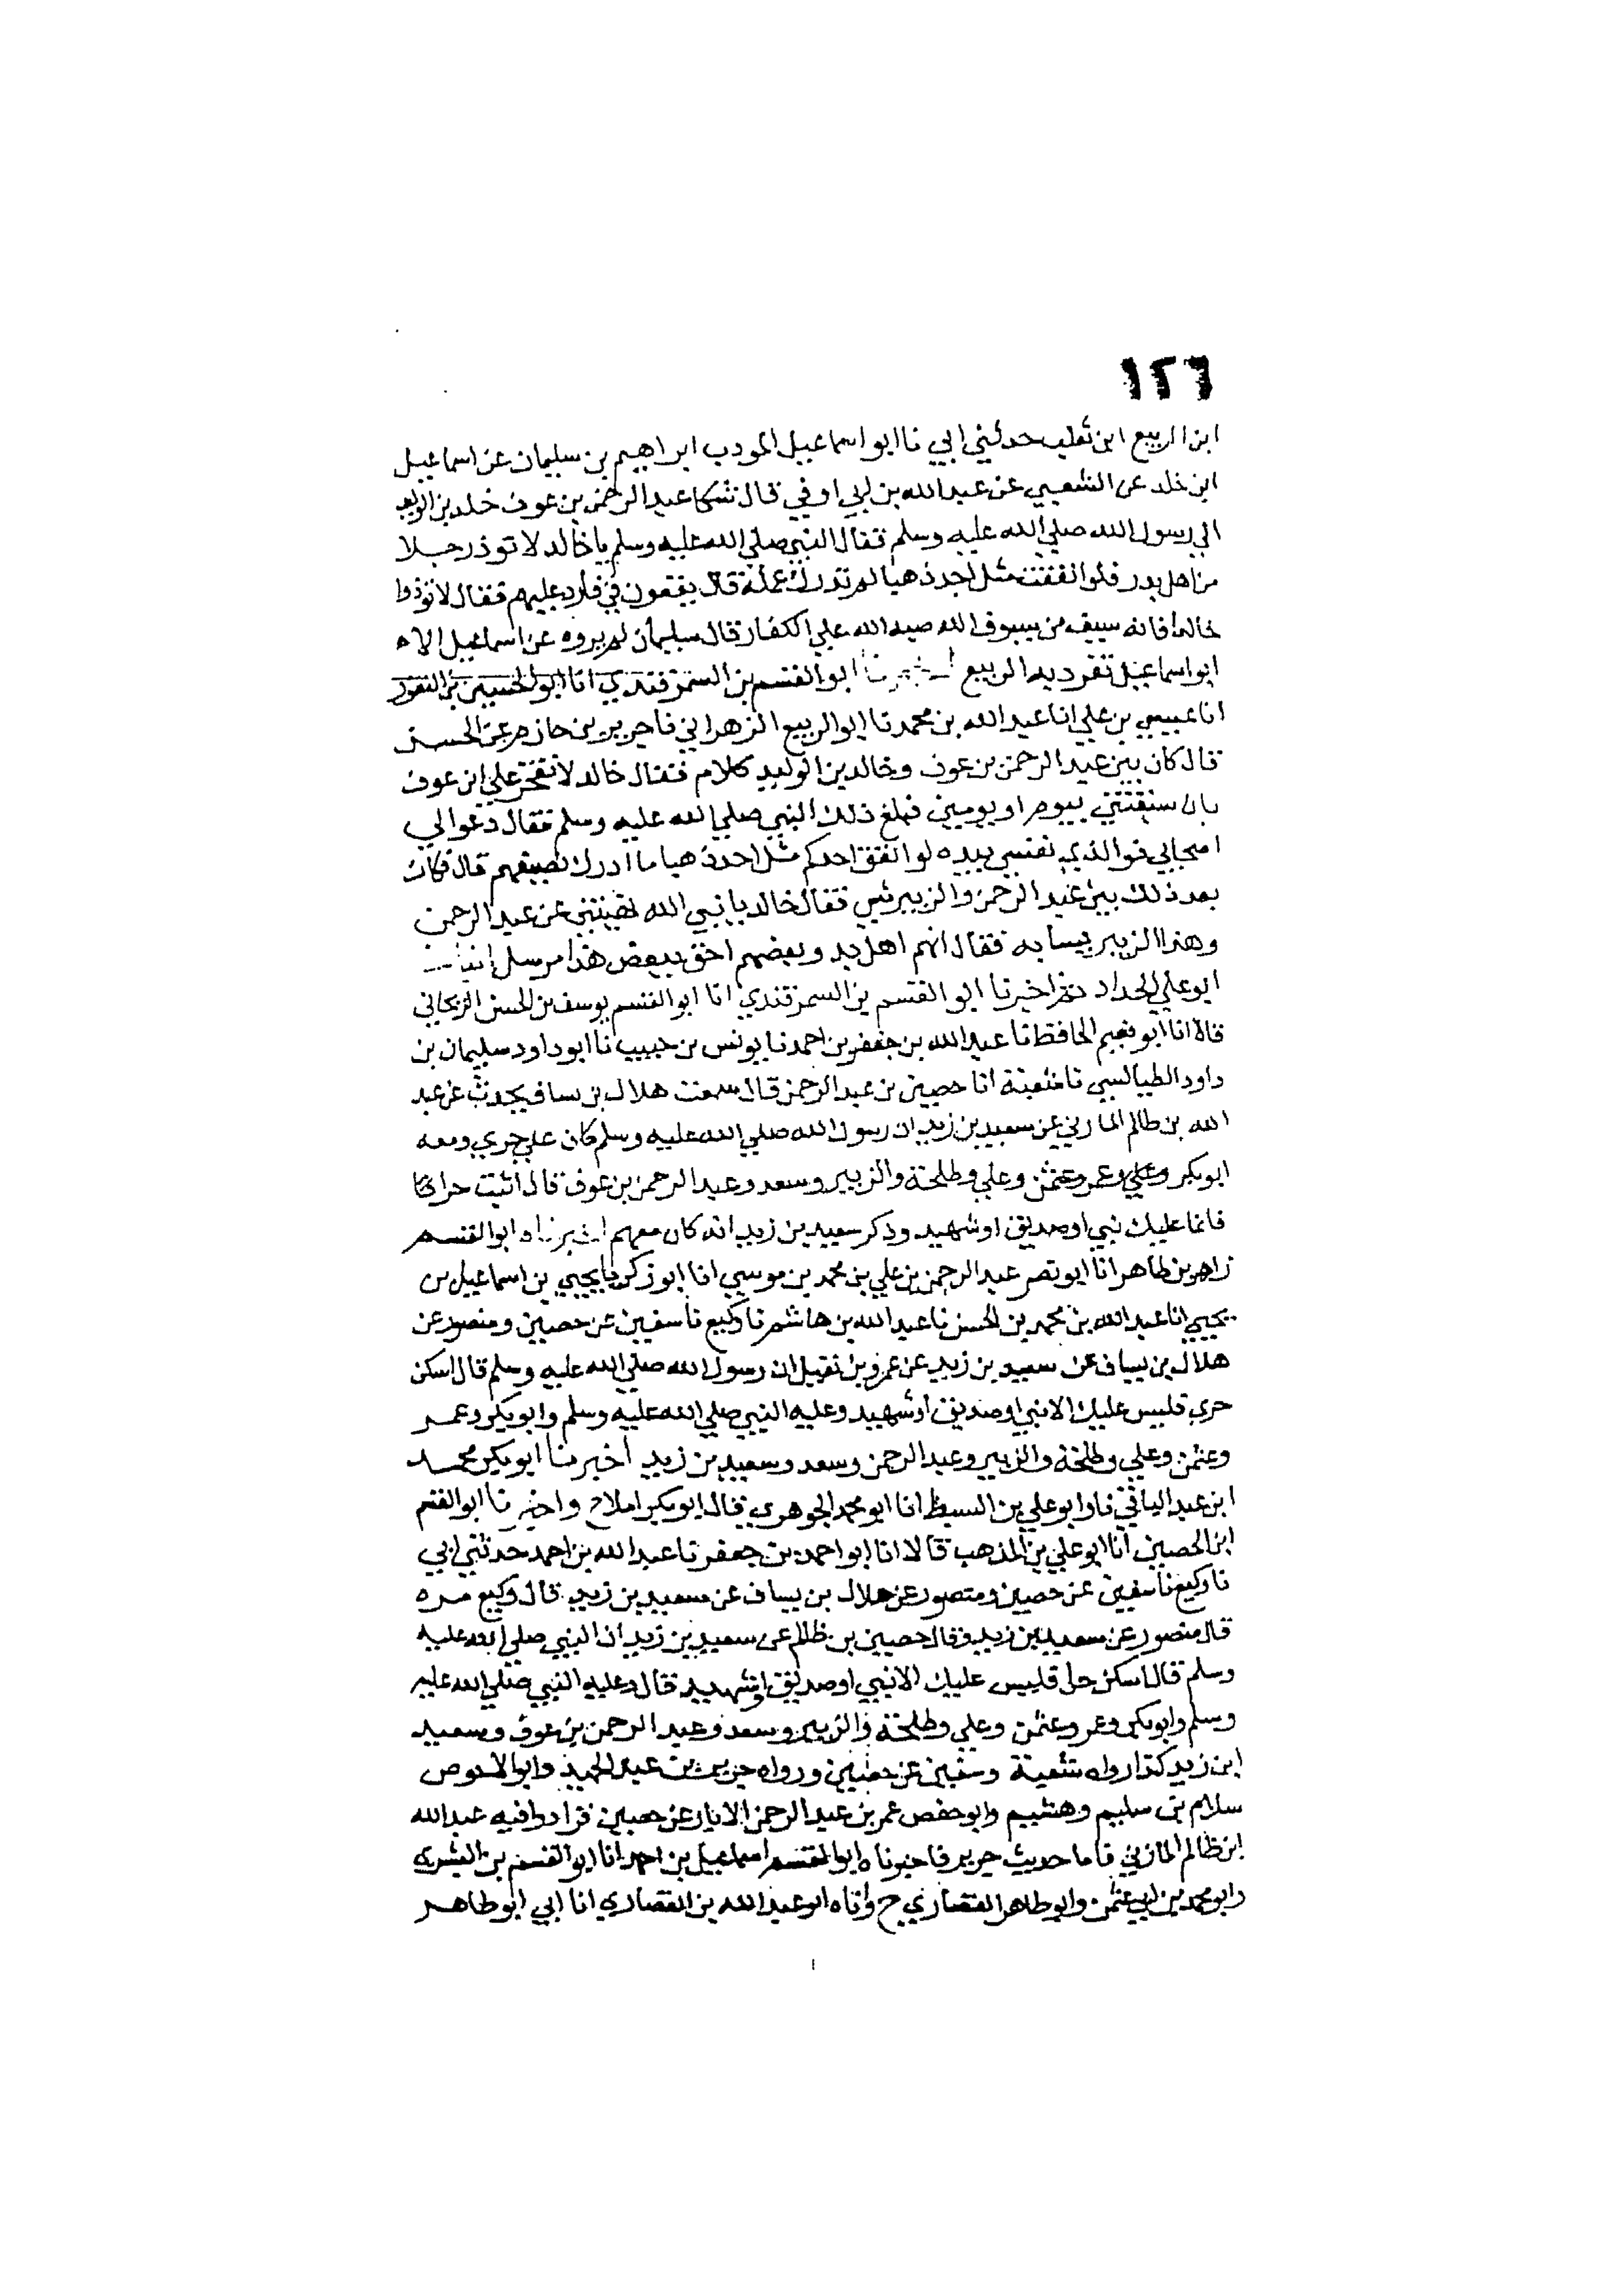 ١٢٦
ابن الربيع ابن ثعلب حدثني ابي نا ابو اسماعيل المودب ابراهيم بن سليمان عن اسماعيل
ابن خلد عن الشعبي عن عبد الله بن ابي اوفي قال شكا عبد الرحمن بن عوف خلد بن الوليد
الي رسول الله صلي الله عليه وسلم فقال النبي صلي الله عليه وسلم يا خالد لا توذ رجلا
من اهل بدر فلو انفقت مثل احد ذهبا لم تدرك عمله قال يقعون في فارد عليهم فقال لا توذوا
خالدا فانه سيف من سيوف الله صبه الله علي الكفار قال سليمان لم يروه عن اسماعيل الا
ابو اسماعيل تفرد به الربيع اخبرنا ابو القسم بن السمرقندي انا ابو الحسين بن النقور
انا عيسي بن علي انا عبد الله بن محمد نا ابو الربيع الزهراني نا جرير بن حازم عن الحسن
قال كان بين عبد الرحمن بن عوف وخالد بن الوليد كلام فقال خالد لا تفخر علي ابن عوف
بان سبقتني بيوم او يومين فبلغ ذلك النبي صلي الله عليه وسلم فقال دعوا لي
اصحابي فوالذي نفسي بيده لو انفق احدكم مثل احد ذهبا ما ادرك نصيفهم قال فكان
بعد ذلك بين عبد الرحمن والزبير شي فقال خالد يا نبي الله نهيتني عن عبد الرحمن
وهذا الزبير يسابه فقال انهم اهل بدر وبعضهم احق ببعض هذا مرسل
ابو علي الحداد اخبرنا ابو القسم بن السمرقندي انا ابو القسم يوسف بن الحسن الزنجاني
قالا انا ابو نعيم الحافظ نا عبد الله بن جعفر بن احمد نا يونس بن حبيب نا ابو داود سليمان بن
داود الطيالسي نا شعبة انا حصين بن عبد الرحمن قال سمعت هلال بن يساف يحدث عن عبد
الله بن ظالم المازني عن سعيد بن زيد ان رسول الله صلي الله عليه وسلم كان علي حري ومعه
ابو بكر وعمر وعثمن وعلي وطلحة والزبير وسعد وعبد الرحمن بن عوف قال اثبت حرا
فانما عليك نبي او صديق او شهيد وذكر سعيد بن زيد انه كان معهم اخبرناه ابو القسم
زاهر بن طاهر انا ابو نصر عبد الرحمن بن علي بن محمد بن موسي انا ابو زكريا يحيي بن اسماعيل بن
يحيي انا عبد الله بن محمد بن الحسن نا عبد الله بن هاشم نا وكيع نا سفين عن حصين ومنصور عن
هلال بن يساف عن سعيد بن زيد عن عمرو بن نفيل ان رسول الله صلي الله عليه وسلم قال اسكن
حري فليس عليك الا نبي او صديق او شهيد وعليه النبي صلي الله عليه وسلم وابو بكر وعمر
وعثمن وعلي وطلحة والزبير وعبد الرحمن وسعد وسعيد بن زيد اخبرنا ابو بكر محمد
ابن عبد الباقي نا وابو علي بن السبط انا ابو محمد الجوهري قال ابو بكر املاء واخبرنا ابو القسم
ابن الحصين انا ابو علي بن المذهب قالا انا ابو احمد بن جعفر نا عبد الله بن احمد حدثني ابي
نا وكيع نا سفين عن حصين ومنصور عن هلال بن يساف عن سعيد بن زيد قال وكيع مره
قال منصور عن سعيد بن زيد وقال حصين بن ظالم عن سعيد بن زيد ان النبي صلي الله عليه
وسلم قال اسكن حرا فليس عليك الا نبي او صديق او شهيد قال وعليه النبي صلي الله عليه
وسلم وابو بكر وعمر وعثمن وعلي وطلحة والزبير وسعد وعبد الرحمن بن عوف وسعيد
ابن زيد كذا رواه شعبة وسفين عن حصين ورواه جرير بن عبد الحميد وابو الاحوص
سلام بن سليم وهشيم وابو حفص عمر بن عبد الرحمن الابار عن حصين فزادوا فيه عبد الله
ابن ظالم المازني فاما حديث جرير فاخبرناه ابو القسم اسماعيل بن احمد انا ابو القسم بن البسري
وابو محمد بن ابي عثمن وابو طاهر القصاري ح وانا ابو عبد الله بن القصاري انا ابي ابو طاهر